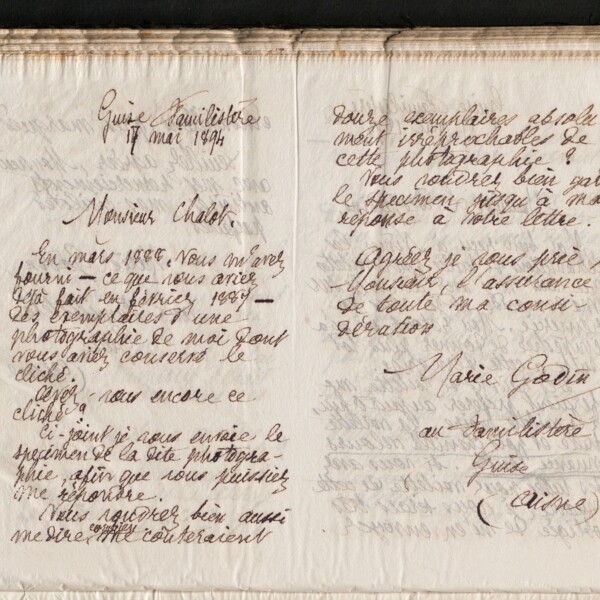 Guise Familistère
17 mai 1894
Monsieur Chalot.
En mars 1888, vous m'avez
fourni — ce que vous aviez
déjà fait en février 1887 —
des exemplaires d'une
photographie de moi dont
vous avez conservé le
cliché.
Avez-vous encore ce
cliché ?
Ci-joint je vous envoie le
specimen de la dite photogra-
phie, afin que vous puissiez
me répondre.
Vous voudrez bien aussi
me dire combien me coûteraient
douze exemplaires absolu
ment irréprochables de
cette photographie ?
Vous voudrez bien gar
le specimen jusqu'à ma
réponse à votre lettre.
Agréez je vous prie
Monsieur, l'assurance
de toute ma consi-
dération
Marie Godin
au Familistère
Guise
(Aisne)